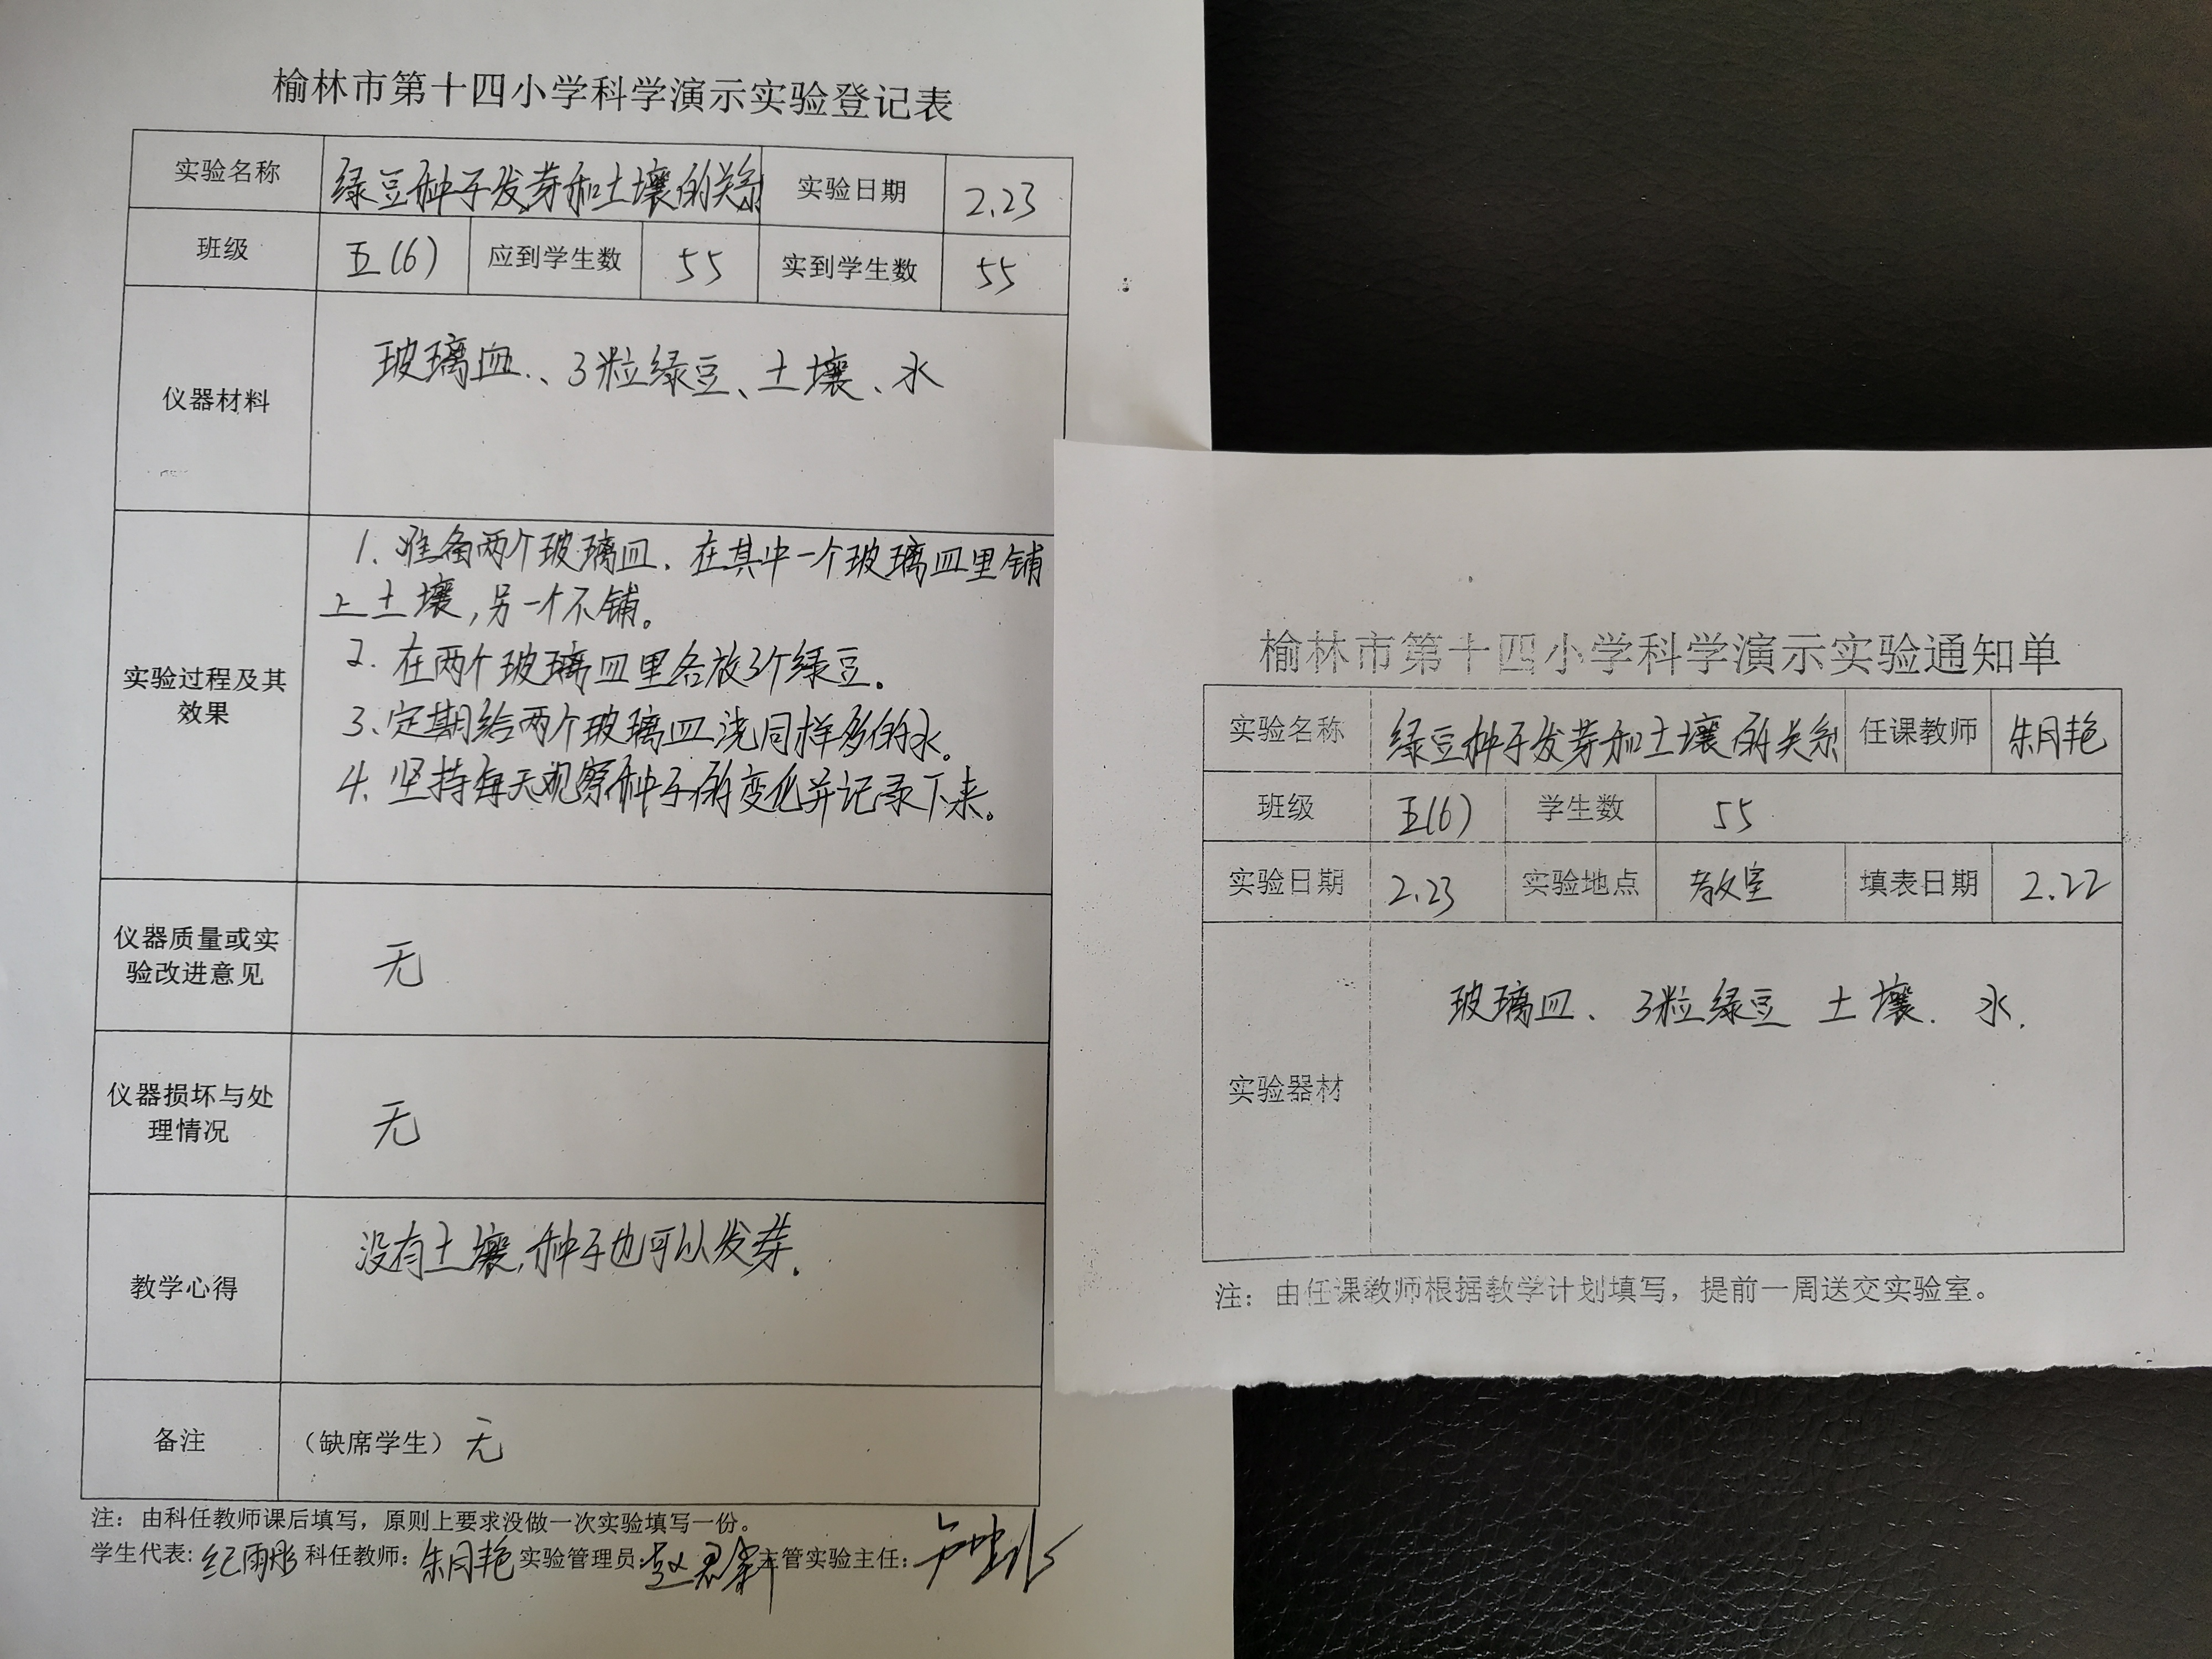 榆林市第十四小学科学演示实验登记表
实验名称 绿豆种子发芽和土壤的关系 实验日期 2.23
班级 五(6) 应到学生数 55 实到学生数 55
仪器材料 玻璃皿、3粒绿豆、土壤、水
实验过程及其效果
1.准备两个玻璃皿.在其中一个玻璃皿里铺
上土壤,另一个不铺。
2.在两个玻璃皿里各放3个绿豆。
3、定期给两个玻璃皿浇同样多的水。
4、坚持每天观察种子的变化并记录下来。
仪器质量或实
验改进意见 无
仪器损坏与处
理情况 无
教学心得 没有土壤,种子也可以发芽.
备注 (缺席学生) 无
注：由科任教师课后填写，原则上要求没做一次实验填写一份。
学生代表: 纪雨彤 科任教师: 朱月艳 实验管理员: 主管实验主任:
榆林市第十四小学科学演示实验通知单
实验名称 绿豆种子发芽和土壤的关系 任课教师 朱月艳
班级 五(6) 学生数 55
实验日期 2.23 实验地点 教室 填表日期 2.22
实验器材 玻璃皿、3粒绿豆 土壤. 水.
注：由任课教师根据教学计划填写，提前一周送交实验室。